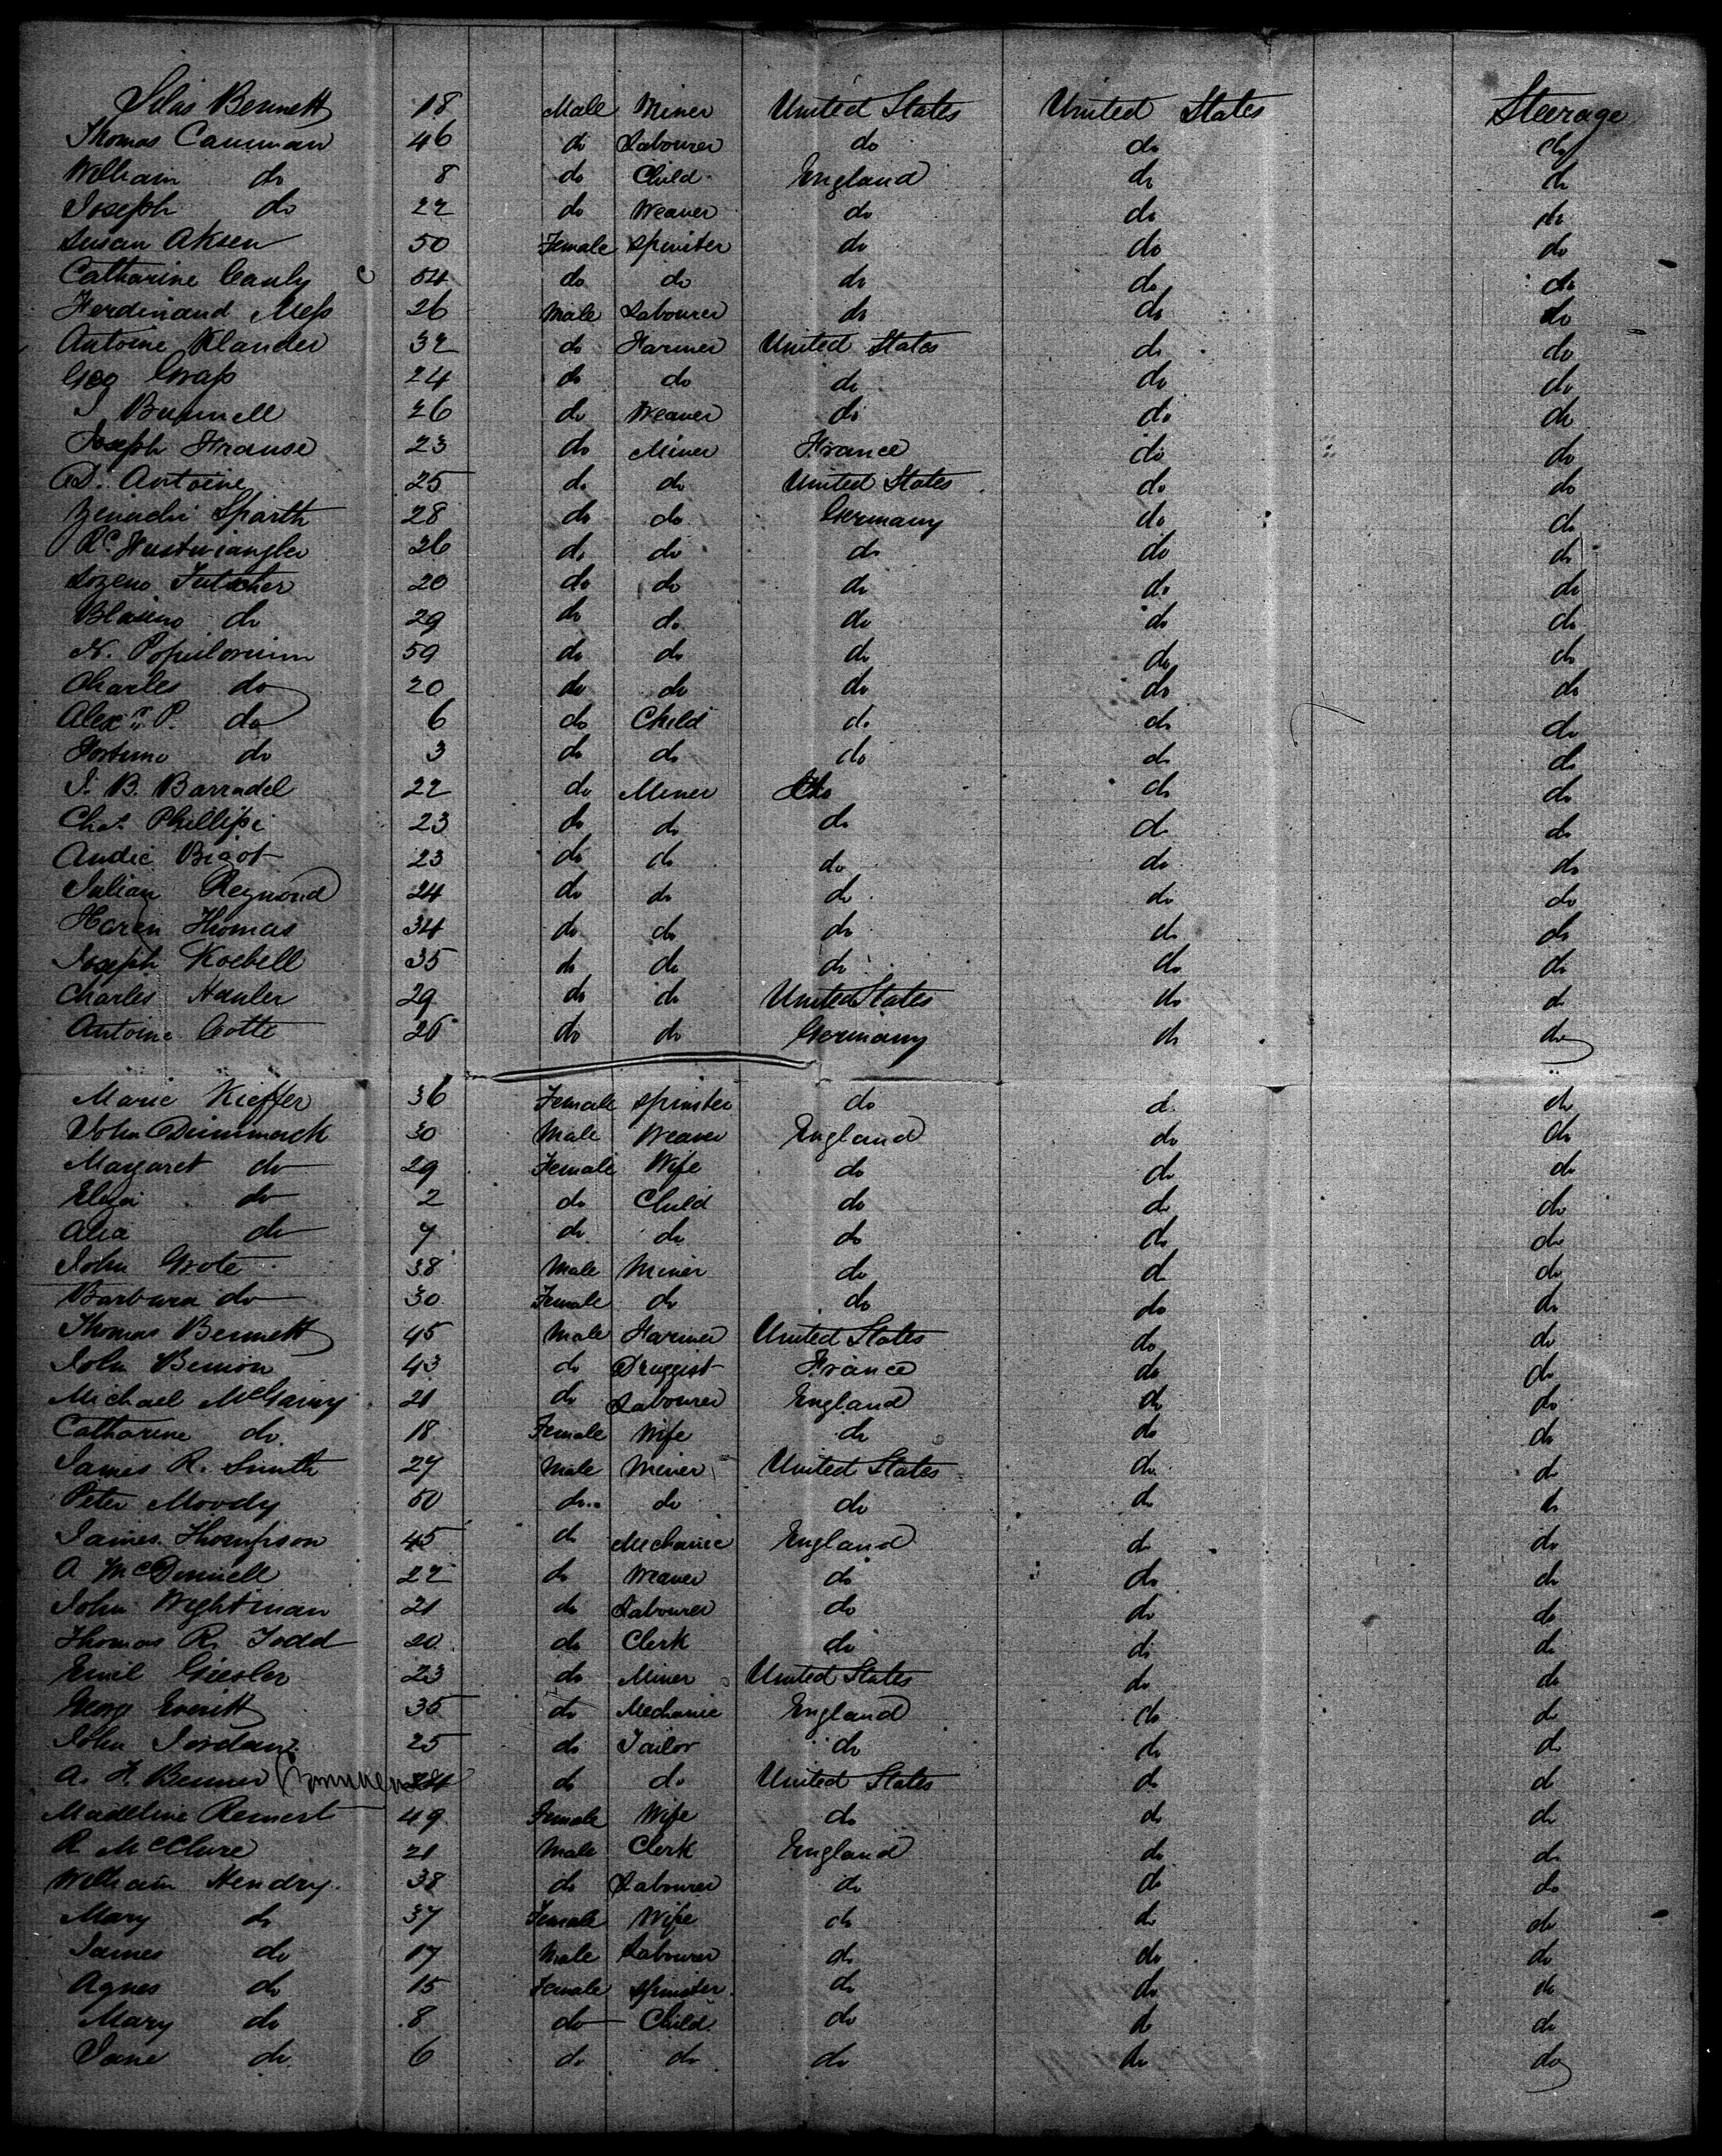 Silas Bennett 18 Male Miner United States United States Steerage
Thomas Cannman 46 do Labourer do do do
William do 8 do Child England do do
Joseph do 22 do Weaver do do do
Susan Aksen 50 Female Spinster do do do
Catharine Cauly 54 do do do do do
Ferdinand Mess 26 Male Labourer do do do
Antoine Klander 32 do Farmer United States do do
Geo Grass 24 do do do do do
J Bunnell 26 do Weaver do do do
Joseph Krause 23 do Miner France do do
AD. Antoine 25 do do United States do do
Sparth 28 do do Germany do do
26 do do do do do
20 do do do do do
do 29 do do do do do
N. Populorum 59 do do do do do
Charles do 20 do do do do do
Alexr P. do 6 do Child do do do
do 3 do do do do do
J. B. Barradel 22 do Miner do do do
Chas. Phillipi 23 do do do do do
Andie Bigot 23 do do do do do
Julian Reymond 24 do do do do do
Thomas 34 do do do do do
Joseph Koebell 35 do do do do do
Charles Hauler 29 do do United States do do
Antoine Cotte 26 do do Germany do do
Marie Kieffer 36 Female Spinster do do do
John Dimmack 30 Male Weaver England do do
Margaret do 29 Female Wife do do do
Eliza do 2 do Child do do do
do 7 do do do do do
John Grote 38 Male Miner do do do
Barbara do 30 Female do do do do
Thomas Bennett 45 Male Farmer United States do do
John Bemon 43 do Druggist France do do
Michael McGarvy 21 do Labourer England do do
Catharine do 18 Female Wife do do do
James R. Smith 27 Male Miner United States do do
Peter Moody 50 do do do do do
James Thompson 45 do Mechanic England do do
A McDonnell 22 do Weaver do do do
John Wightman 21 do Labourer do do do
Thomas R. Todd 20 do Clerk do do do
Emil Giesler 23 do Miner United States do do
George Everitt 35 do Mechanic England do do
John Jordan 25 do Tailor do do do
A. F. Benner 24 do do United States do do
Madeline Remert 49 Female Wife do do do
R McClure 21 Male Clerk England do do
William Hendry 38 do Labourer do do do
Mary do 37 Female Wife do do do
James do 17 Male Labourer do do do
Agnes do 15 Female Spinster do do do
Mary do 8 do Child do do do
Jane do 6 do do do do do